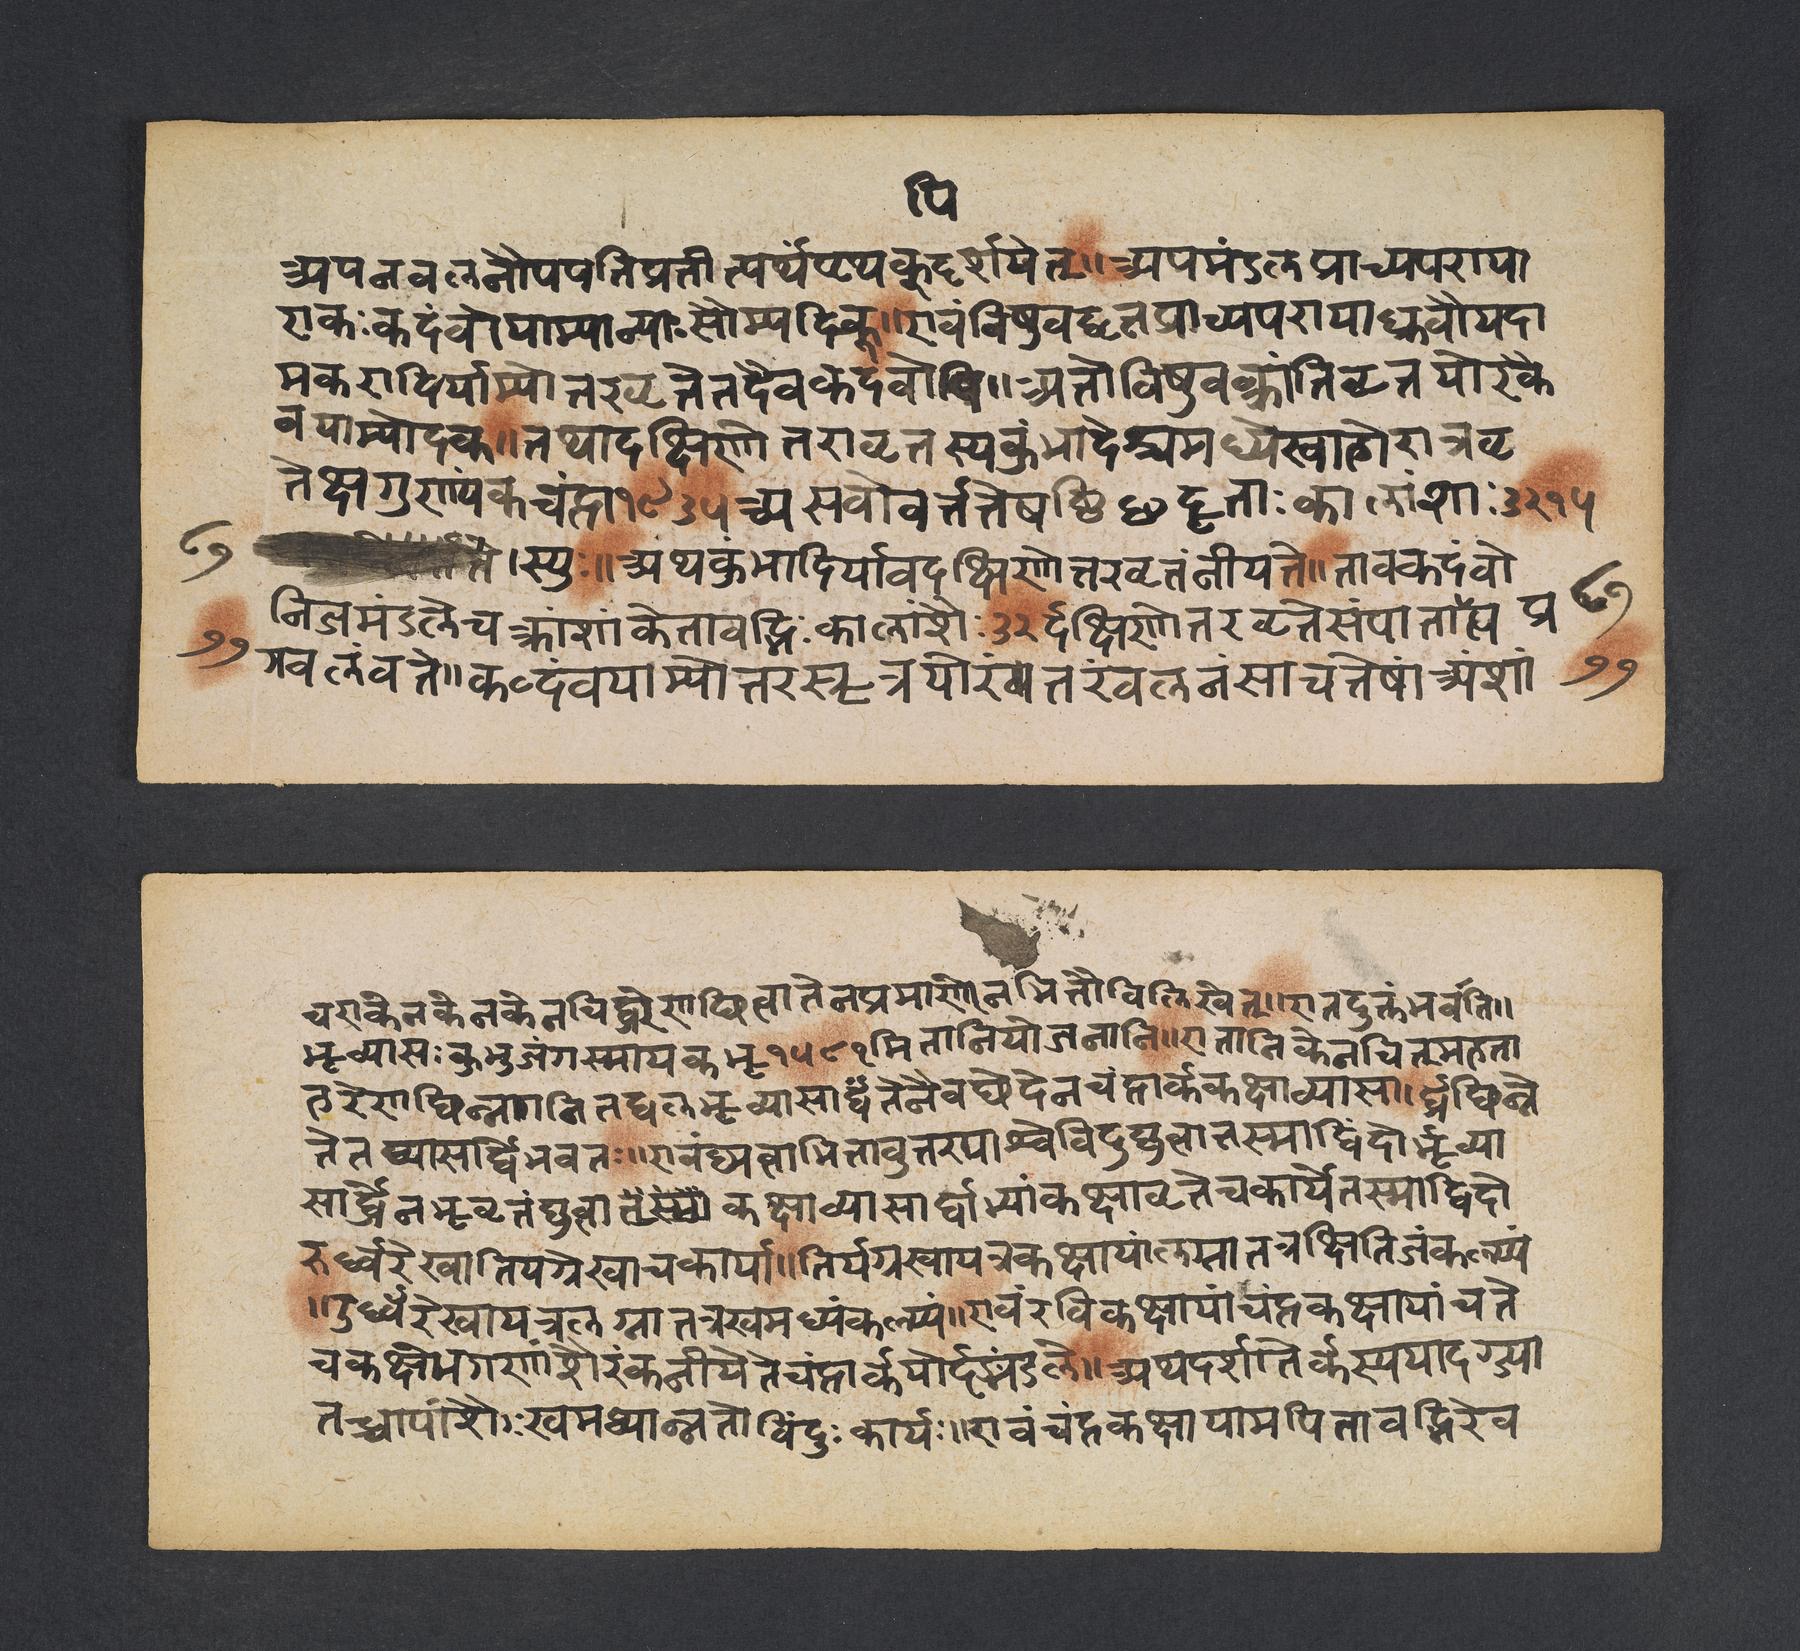 पि
अयनवलनोपपतिप्रतीत्यर्थंपृथकूदर्शयेत्॥अपमंडलप्राच्यपराया
एकः कदंबोयाम्यान्याः सौम्यदिक्॥एवंविषुवद्वृतप्राच्यपरायाध्रुवौयदा
मकरादिर्याम्योत्तरवृत्तेतदैवकदंबोपि॥अतोविषुवत्क्रांतिवृत्तयोरेकै
वयाम्योदक्॥तथादक्षिणोतरावृतस्यकुंभादेश्चमध्येस्वाहोरात्रवृ
तेक्षगुणांकचंद्रा१९३५च्यसवोवर्त्ततेषष्ठिछ दृताः कालांशाः ३२१५
ते।स्युः॥अथकुंभादिर्यावद्दक्षिणोत्तरवृतंनीयते॥तावत्कदंबो
निजमंडलेचक्रांशांकेतावद्भिः कालांशैः ३२र्दक्षिणोतरवृतेसंपातात्प्र
७७ गवलंबते॥कदंबयाम्योत्तरसूत्रयोरंतरंवलनंसाचतेषांअंशां ७७
चएकेनकेनकेनचिद्धरेणछित्वातेनप्रमाणेनभित्तौविलिखेत्॥एतदुक्तंभवति॥
भूव्यासः कुभुजंगस्मायकभू१५८१मितानियोजनानि॥एतानिकेनचित्महता
हरेणछिन्नानितद्दलभूव्यासार्द्धंतेनैवछेदेनचंद्रार्ककक्षाव्यासा।र्द्धेछिन्ने
तेतव्यासार्द्धेभवतः॥एवंछ्यत्वाभितावुतरपार्श्वेविंदुघुत्वातस्माद्विंदोर्भूव्या
सार्द्धेनभूवृतंघुत्वातेस्सौ कक्षाव्यासार्धाभ्यांकक्षावृतेचकार्येतस्माद्विंदो
रुर्ध्वरेखातियग्रेखाचकार्या॥तिर्यग्रेखायत्रकक्षायांलग्नातत्रक्षितिजंकल्प्यं
॥उर्ध्वंरेखायत्रलग्नातत्रखमध्यंकल्प्यं॥एवंरविकक्षायांचंद्रकक्षायांचते
चकक्षेभगणांशैरंकनीयेतेचंद्रार्कयोर्दृङ्मंडले॥अथदर्शांतेर्कस्ययादग्ज्या
तच्चापांशैः खमध्यान्नतोविंदुः कार्यः॥एवंचंद्रकक्षायामपितावद्भिरेव